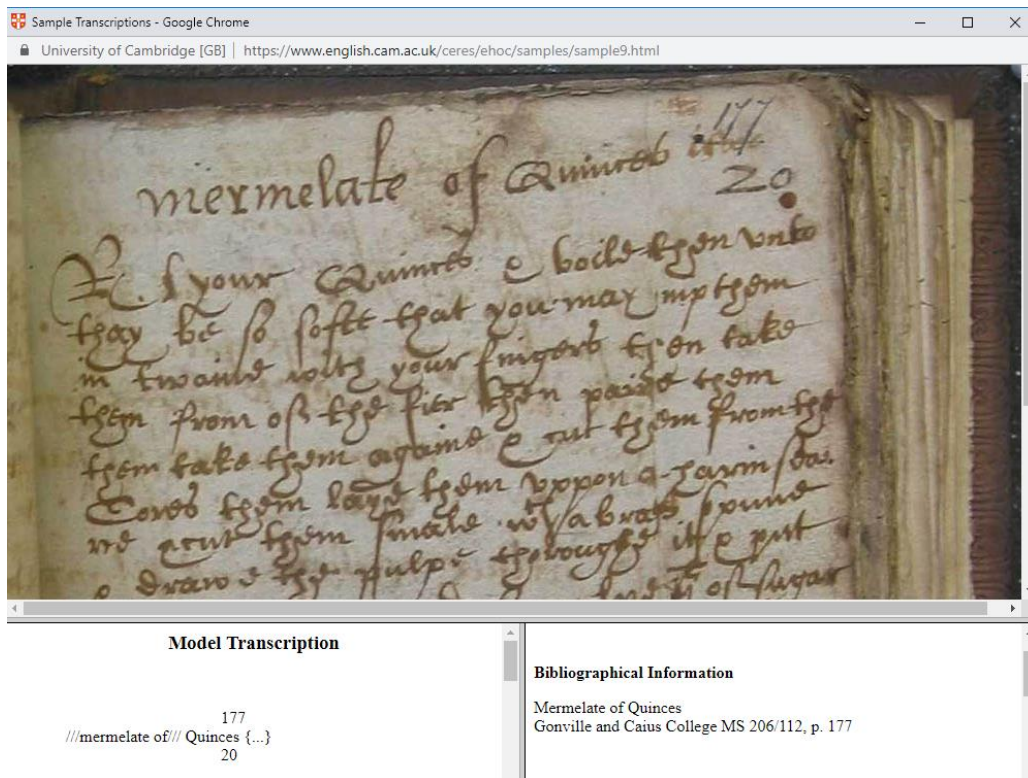 Sample Transcriptions - Google Chrome
University of Cambridge [GB] | https://www.english.cam.ac.uk/ceres/ehoc/samples/sample9.html
177
mermelate of Quinces
20
your Quinces & boile then vnto
thay be so softe that you may nip them
in twaine with your fingers then take
them from of the fier then paire them
them take them againe & cut them from the
Cores them laye them vppon a
& cut them smale wth a brass spune
& drawe the pulpe thoroughe it & put
of sugar
Model Transcription
177
///mermelate of/// Quinces {...}
20
Bibliographical Information
Mermelate of Quinces
Gonville and Caius College MS 206/112, p. 177